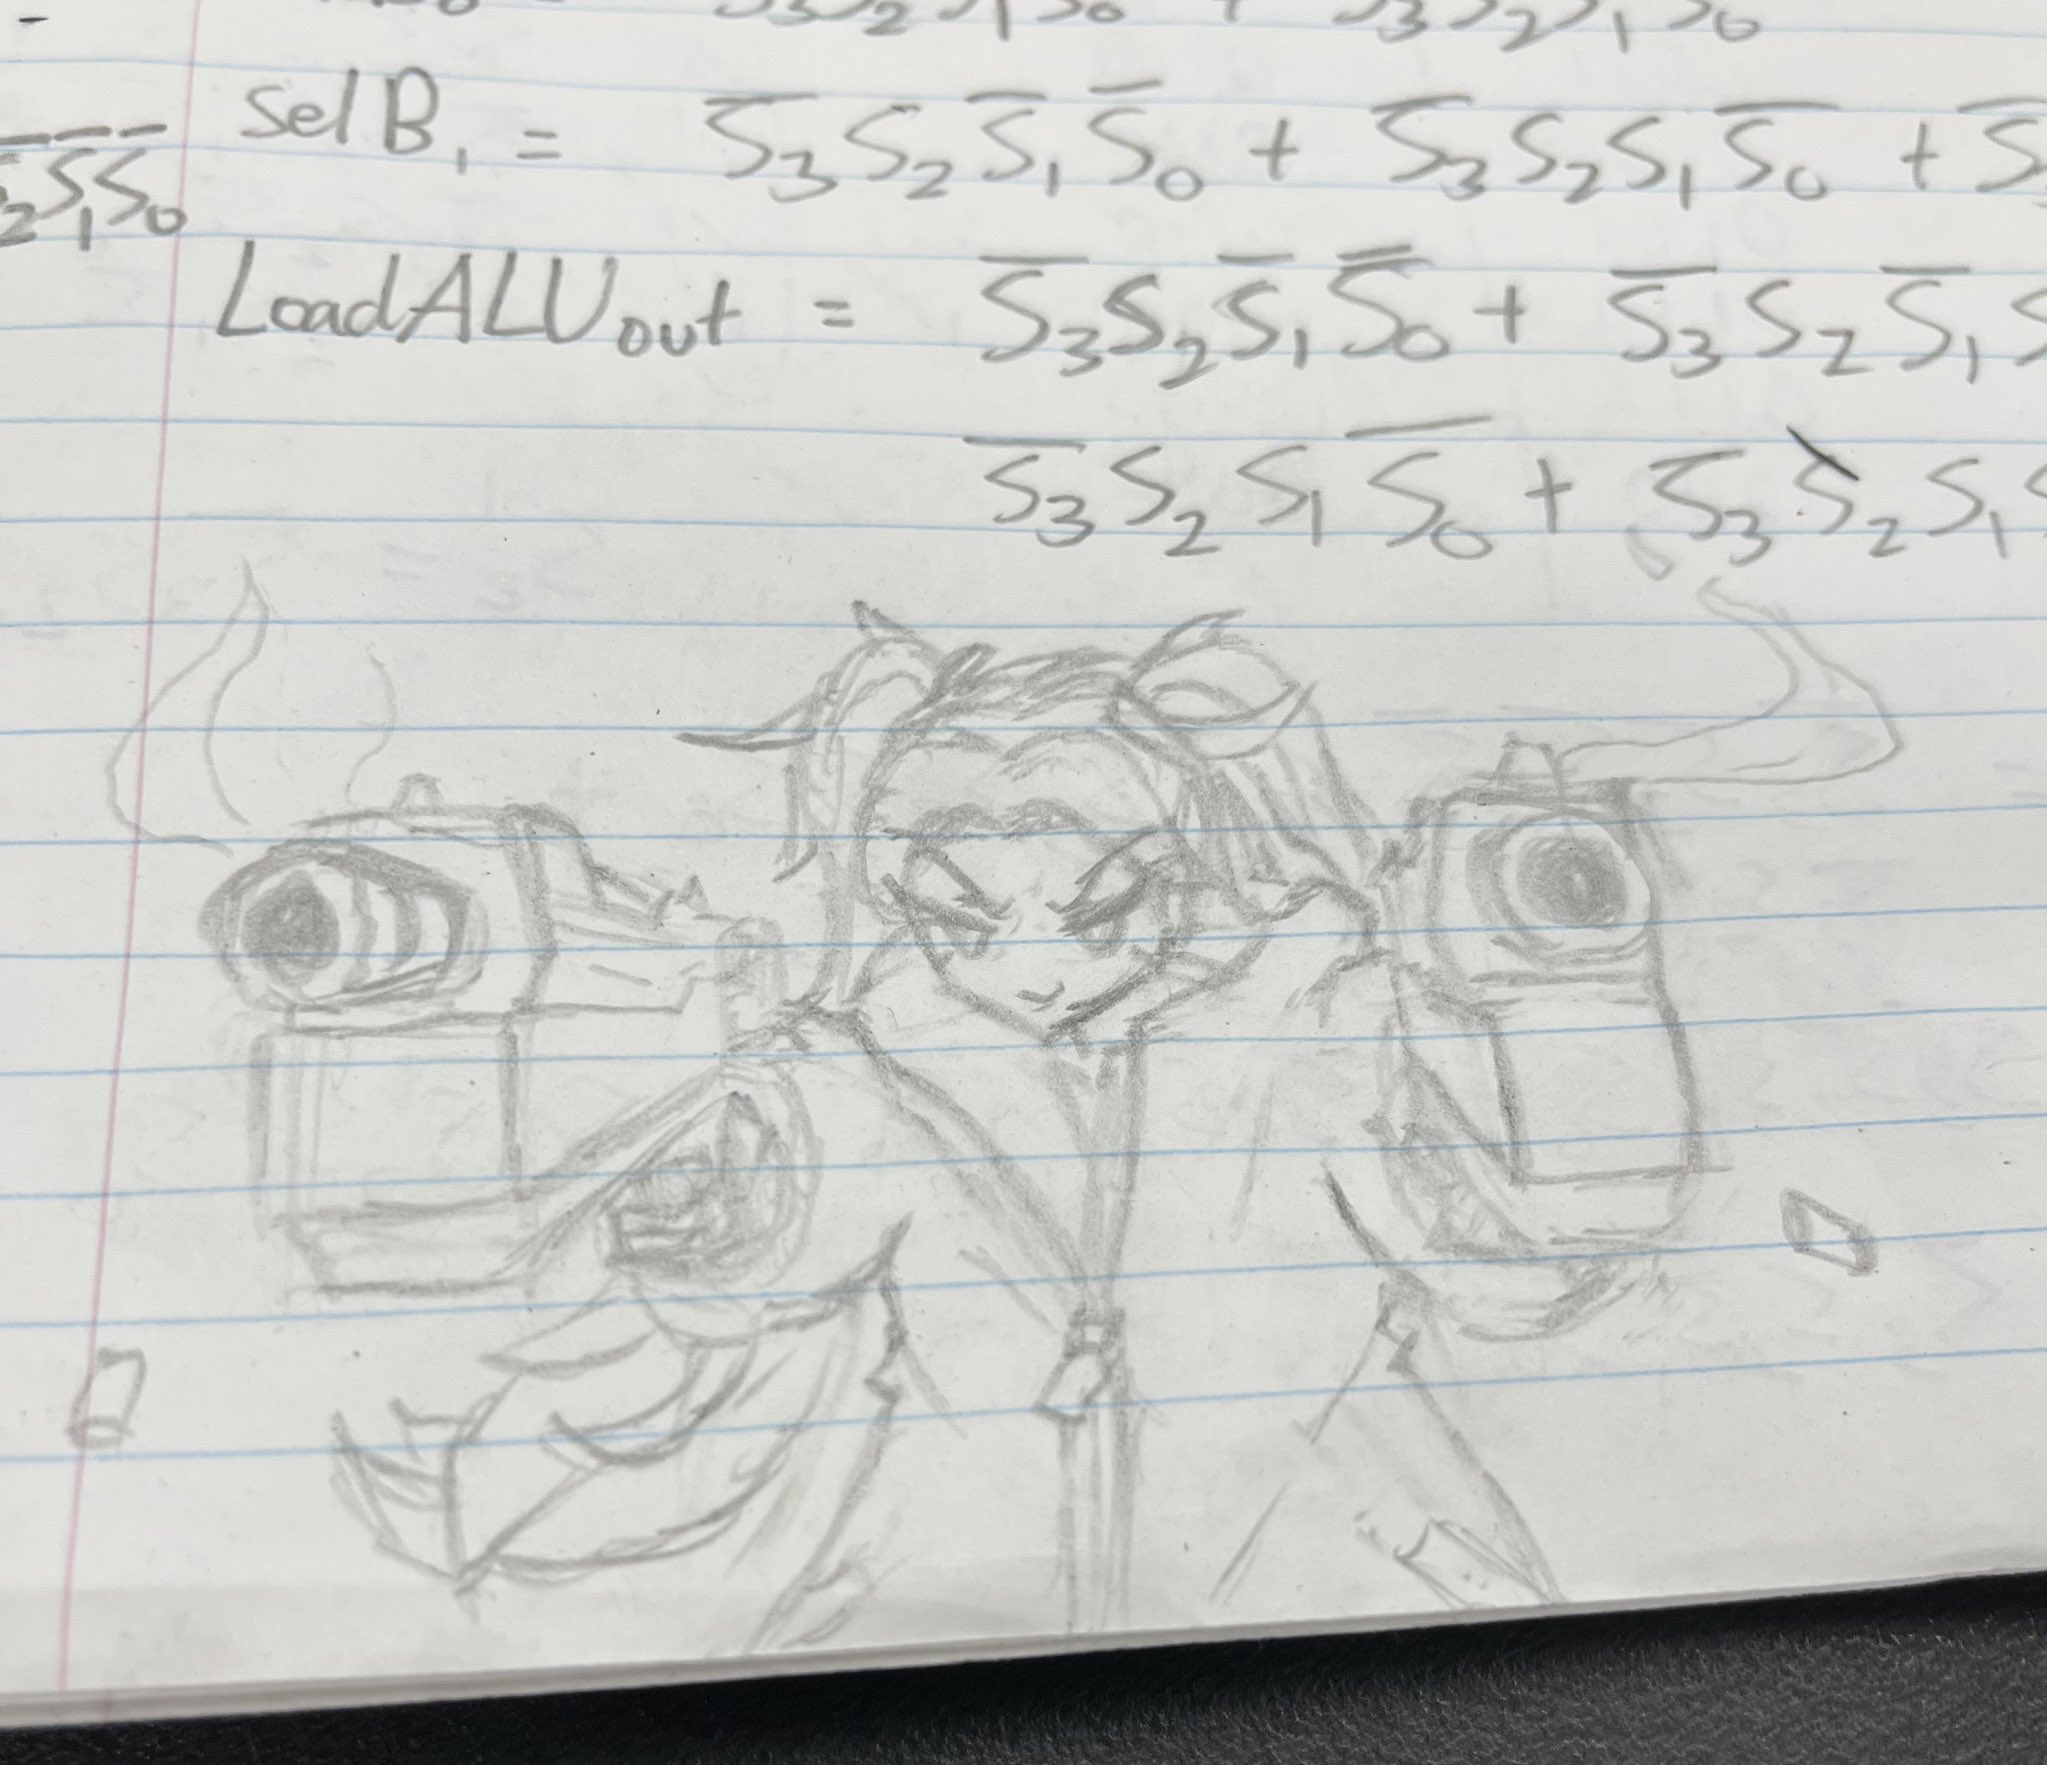 S̅₃S₂S̅₁S̅₀
SelB₁ = S̅₃S₂S̅₁S̅₀ + S̅₃S₂S₁S̅₀ + S̅
₂S̅₁S̅₀
LoadALUout = S̅₃S₂S̅₁S̅₀ + S̅₃S₂S̅₁S
S̅₃S₂S₁S̅₀ + S̅₃S₂S₁S